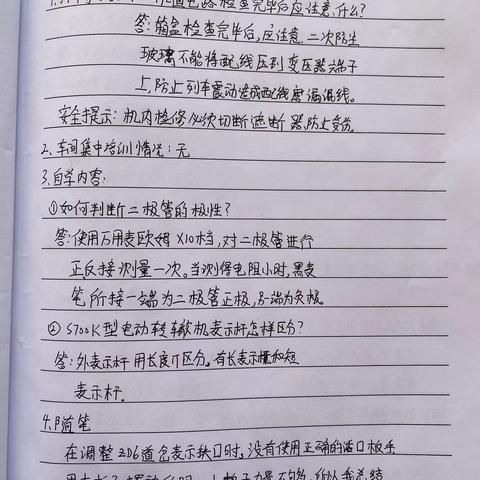 电路检查完毕后应注意什么?
答:箱盒检查完毕后,应注意二次防尘
玻璃不能将配线压到变压器端子
上,防止列车震动造成配线磨漏混线。
安全提示:机内检修必须切断遮断器,防止受伤。
2.车间集中培训情况:无
3.自学内容:
①如何判断二极管的极性?
答:使用万用表欧姆X10档,对二极管进行
正反接测量一次。当测得电阻小时,黑表
笔所接一端为二极管正极,另一端为负极。
②S700K型电动转辙机表示杆怎样区分?
答:外表示杆用长度区分。有长表示杆和短
表示杆。
4.随笔
在调整2D6道岔表示缺口时,没有使用正确的活口板手